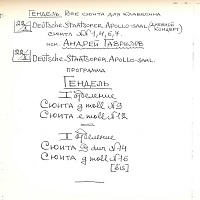 ГЕНДЕЛЬ. Восемь сюита для клавесина
DEUTSCHE STAATSOPER. APOLLO-SAAL. (ДНЕВНОЙ КОНЦЕРТ)
СЮИТЫ №№ 1, 4, 6, 7.
исп. АНДРЕЙ ГАВРИЛОВ
DEUTSCHE STAATSOPER. APOLLO-SAAL.
ПРОГРАММА
ГЕНДЕЛЬ
I отделение
СЮИТА g moll №3
СЮИТА e moll №12
II отделение
СЮИТА dur №14
СЮИТА g moll №16
[bis]